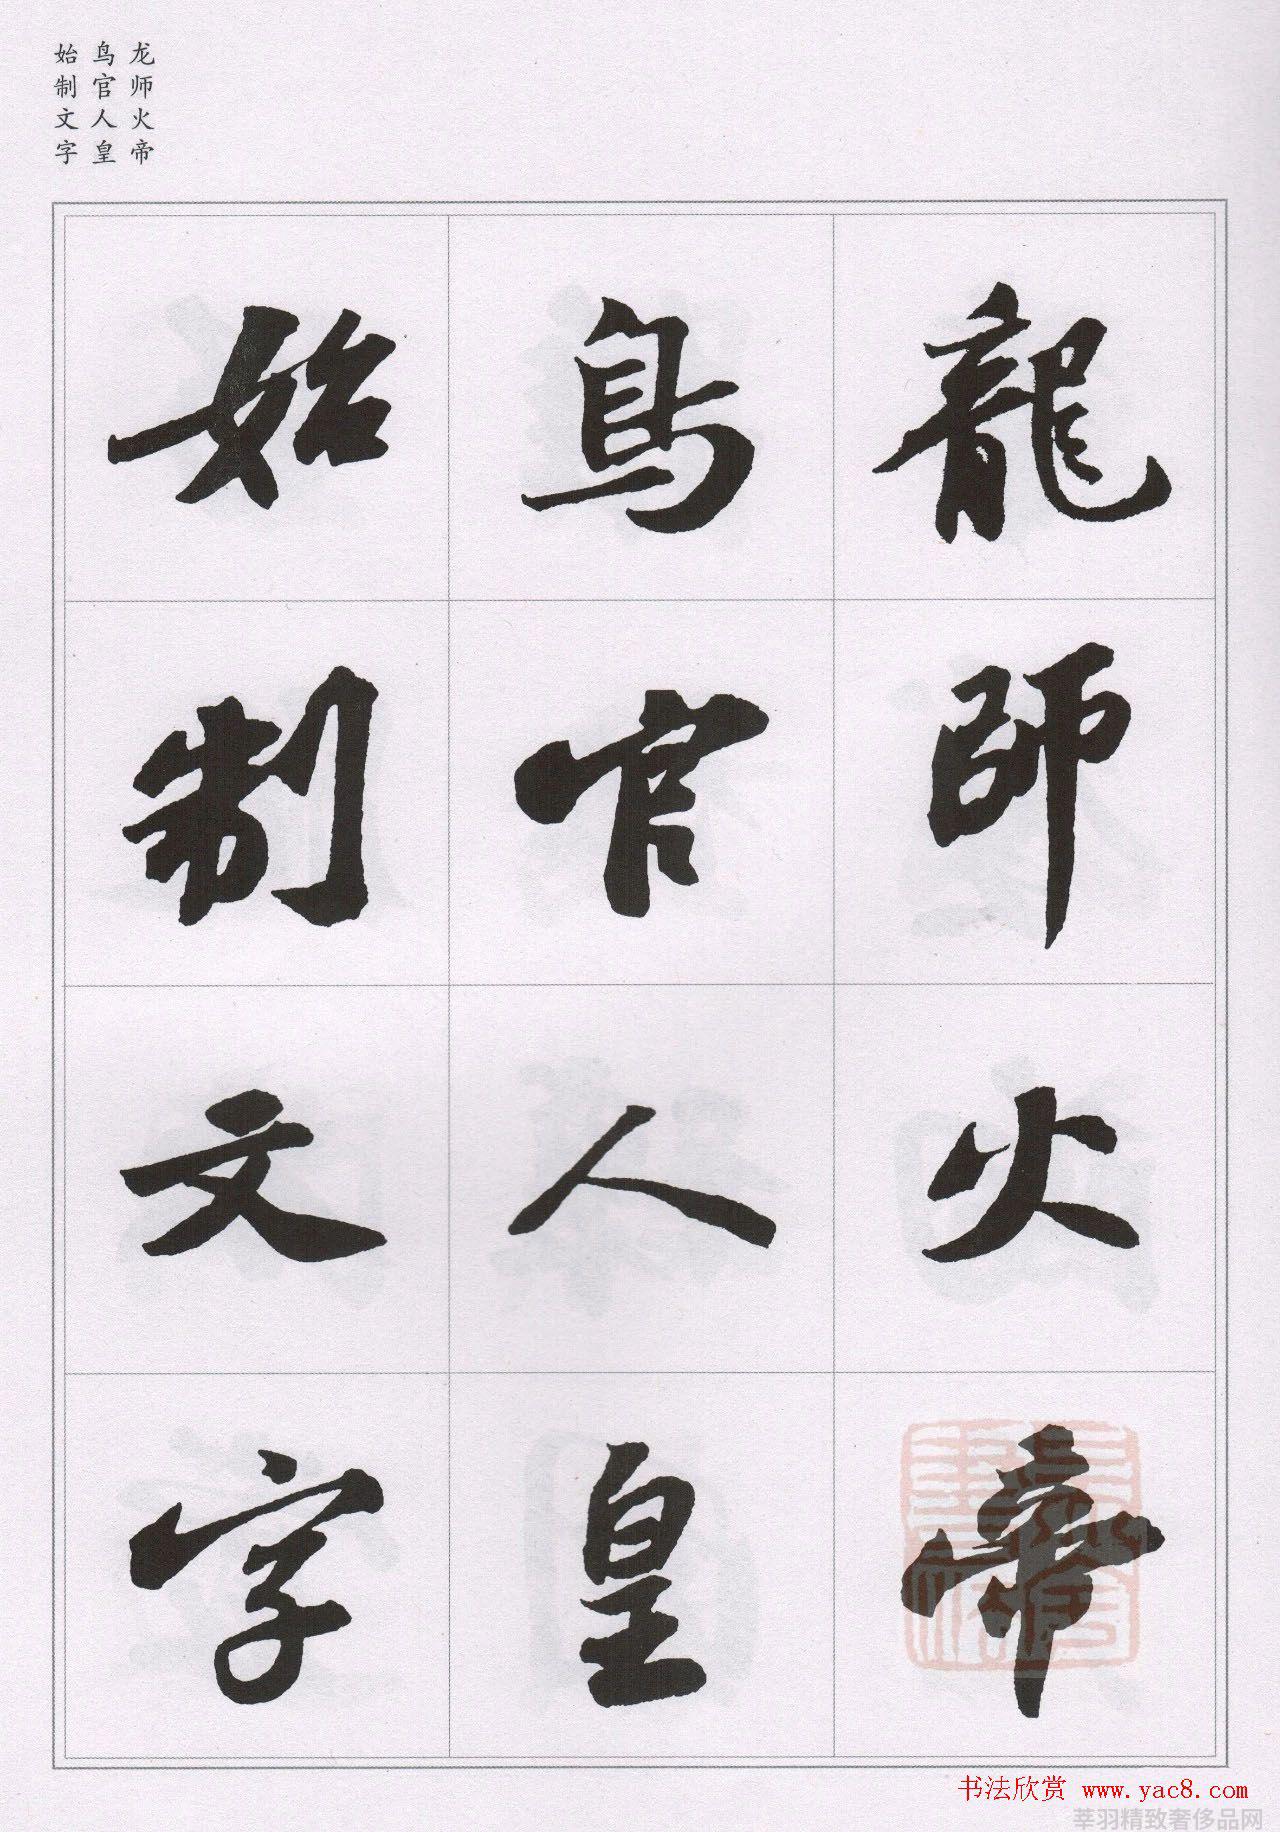 龙师火帝
鸟官人皇
始制文字
龍師火帝
鳥官人皇
始制文字
书法欣赏 www.yac8.com
莘羽精致奢侈品网